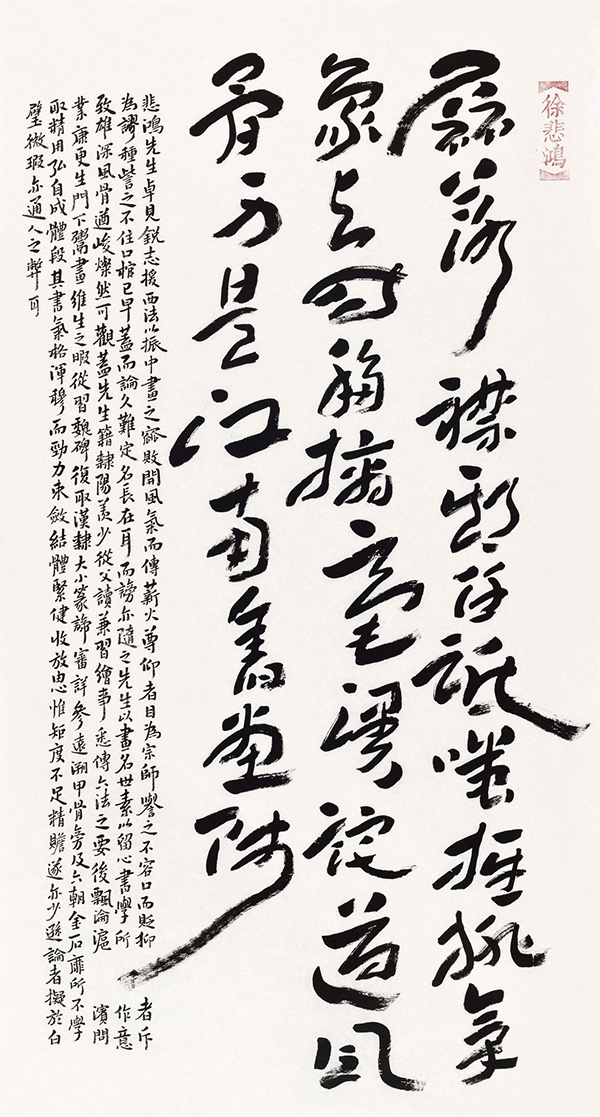 徐悲鴻
磊落襟期任詆嗤推排氣
象与時移摛毫謾詫遒風
骨可是江南舊畫師
悲鴻先生卓見銳志援西法以振中畫之窳敗開風氣而傳薪火尊仰者目為宗師譽之不容口而貶抑者斥
為謬種訾之不住口棺已早蓋而論久難定名長在耳而謗亦隨之先生以畫名世素以留心書學所作意
致雄深風骨遒峻燦然可觀蓋先生籍隸陽羨少從父讀兼習繪事悉傳六法之要後飄淪滬濱問
業康更生門下鬻畫維生之暇從習魏碑復取漢隸大小篆諦審詳參遠溯甲骨旁及六朝金石靡所不學
取精用弘自成體段其書氣格渾穆而勁力束斂結體緊健收放由心惟矩度不足精贍遂亦少遜論者擬於白
璧微瑕亦通人之弊耳